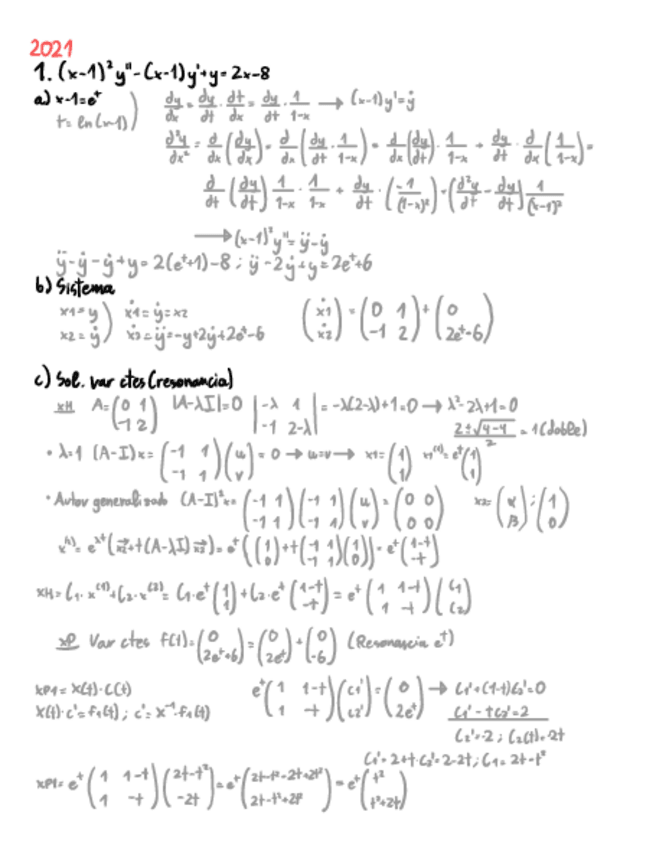 2021
1. (x-1)² y" - (x-1) y' + y = 2x-8
a) x-1 = eᵗ ) dy/dx = dy/dt · dt/dx = dy/dt · 1/1-x → (x-1)y' = ẏ
t = ln(x-1)
d²y/dx² = d/dx (dy/dx) = d/dx (dy/dt · 1/1-x) = d/dx (dy/dt) · 1/1-x + dy/dt · d/dx (1/1-x) =
d/dt (dy/dt) 1/1-x · 1/1-x + dy/dt · (-1/(1-x)²) = (d²y/dt - dy/dt) 1/(x-1)²
→ (x-1)² y" = ÿ - ẏ
ÿ - ẏ - ẏ + y = 2(eᵗ+1) - 8 ; ÿ - 2ẏ + y = 2eᵗ+6
b) Sistema
x1 = y ) ẋ1 = ẏ = x2
x2 = ẏ ) ẋ2 = ÿ = -y + 2ẏ + 2eᵗ - 6
(ẋ1 ẋ2) = (0 1 -1 2) + (0 2eᵗ-6)
c) Sol. var ctes (resonancia)
xH A = (0 1 -1 2) |A-λI| = 0 |-λ 1 -1 2-λ| = -λ(2-λ)+1 = 0 → λ²-2λ+1 = 0
2±√4-4 / 2 = 1 (doble)
• λ=1 (A-I)x = (-1 1 -1 1)(u v) = 0 → u=v → x1 = (1 1) x⁽¹⁾ = eᵗ(1 1)
• Autov generalizado (A-I)²x = (-1 1 -1 1)(-1 1 -1 1)(u v) = (0 0 0 0) x2 = (α β) ; (1 0)
x⁽²⁾ = eλᵗ(x2 + t(A-λI) x2) = eᵗ((1 0) + t(-1 1 -1 1)(1 0)) = eᵗ(1-t -t)
xH = C1 · x⁽¹⁾ + C2 · x⁽²⁾ = C1 · eᵗ(1 1) + C2 · eᵗ(1-t -t) = eᵗ(1 1-t 1 -t)(C1 C2)
xP Var ctes f(t) = (0 2eᵗ+6) = (0 2eᵗ) + (0 -6) (Resonancia eᵗ)
xP1 = X(t) · C(t)
X(t) · C' = f1(t) ; C' = X⁻¹ · f1(t)
eᵗ(1 1-t 1 -t)(C1' C2') = (0 2eᵗ) → C1' + (1-t)C2' = 0
C1' - tC2' = 2
C2' = -2 ; C2(t) = -2t
C1' = 2+t·C2' = 2-2t ; C1 = 2t-t²
xP1 = eᵗ(1 1-t 1 -t)(2t-t² -2t) = eᵗ(2t-t²-2t+2t² 2t-t²+2t²) = eᵗ(t² t²+2t)